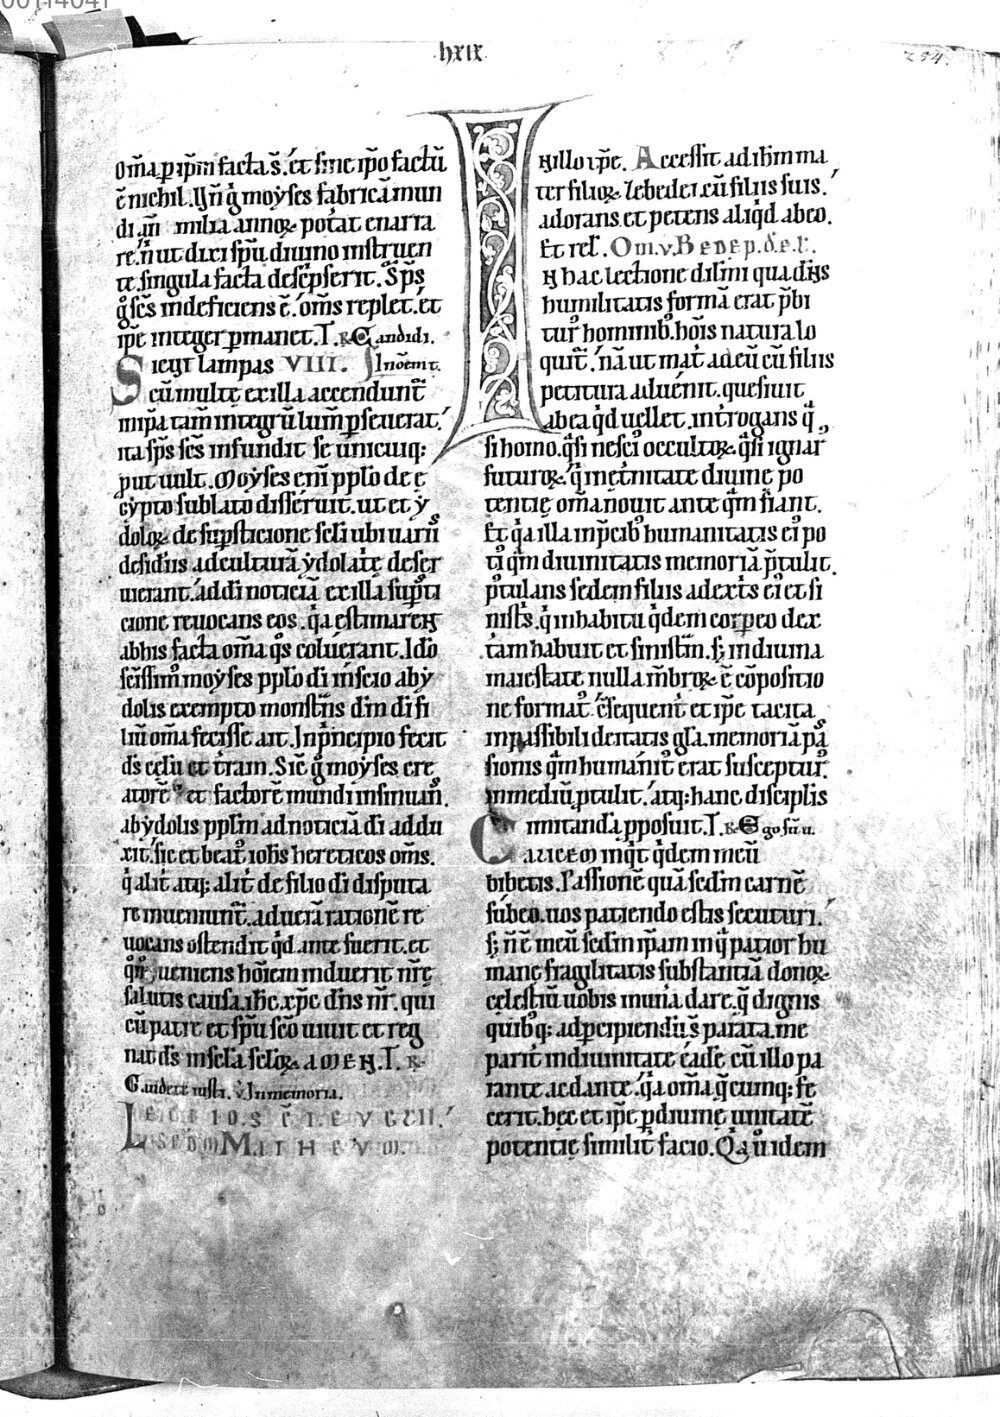 00114041
lxix
254.
om̄a ꝑ ip̄m facta s̄. ⁊ sine ip̄o factū
ē nichil. Ỹn̄ g̊ moẏses fabricā mun
di añ milia annoꝝ potat enarra
re. ñ ut dixi sp̄u diuino instruen
te singula facta desc̄pserit. Sp̄s
ſc̄s indeficiens ē. om̄s replet. et
ip̄e integer ꝑmanet. T. ℞ Candidi.
Sicut lampas VIII. In oēm t.
cū multe ex illa accendunt̄
in ip̄a tam̄ integrū lum̄ ꝑseuerat.
ita sp̄s sc̄s infundit se unicuiq;
ꝓut uult. Moẏses eni pplo de e
gẏpto sublato disseruit. ut et ẏ
doloꝝ de suꝑsticione
desidiis ad culturā ẏdolatrie deser
uierant. ad di noticiā ex illa suꝑsti
cione reuocans eos. q̇a estimarent
ab his facta om̄a q̇s coluerant. Ido
sc̄issim̄ moẏses pplo di inscio ab ẏ
dolis exempto monstrn̄s dm̄ di fi
liū om̄a fecisse ait. In ṗncipio fecit
ds̄ celū et terram. Sic̄ g̊ moẏses cre
atorē et factorē mundi insinuan̄.
ab ẏdolis pplm̄ ad noticiā di addu
xit. sic et beat̄ ioh̄s hereticos om̄s.
q̇ alit̄ atq; alit̄ de filio di disputa
re inueniunt̄. ad uerā rationē re
uocans ostendit q̇d ante fuerit. et
qn̄ ueniens hoīem induerit nr̄e
salutis causa. ih̄c xp̄c dn̄s nr̄. qui
cū patre et sp̄u sc̄o uiuit et reg
nat ds̄ in sc̄la sc̄loꝝ. amen. T. ℞
Gaudete iusti. v̇ In memoria.
Lectio s̄
sed̄m Matheum.
In illo tp̄e. Accessit ad ih̄m ma
ter filioꝝ zebedei cū filiis suis.
adorans et petens aliq̇d ab eo.
Et rel̄. Om. v. Bede p̄.
In hac lectione dil̄mi qua dn̄s
humilitatis formā erat p̄bi
tur̄ hominib. hoīs natura lo
quit̄. nā ut mat̄ ad eū cū filiis
petitura aduēnit. quesiuit
ab ea q̇d uellet. int̄rogans q̇
si homo. q̇si nesci occultoꝝ. q̇si ignar̄
futuroꝝ. q̇ in et̄nitate diuine po
tentie om̄a nouit ante q̇m fiant.
Et q̇a illa in p̄cib humanitatis ei po
ti q̇m diuinitatis memoriā p̄tulit.
p̄tulans sedem filiis a dext̄s ei et si
nist̄s. q̇ in habitu q̇dem corporeo dex
tam̄ habuit et sinist̄m. s; in diuina
maiestate nulla m̄broꝝ ē cōpositio
ne format̄. Cōsequent̄ et ip̄e tacita
inpassibili deitatis gl̄a. memoriā pa
sionis q̇m humanit̄ erat susceptur̄.
in mediū ꝓtulit. atq; hanc discip̄lis
imitandā ꝓposuit. T. ℞ Ego su.
Calicem inq̇t q̇dem meū
bibetis. Passionē quā sedm̄ carnē
subeo. uos patiendo estis secuturi.
s; n̄ ē meū sedm̄ ip̄am in q̇ patior hu
mane fragilitatis substantiā donoꝝ
celestiū uobis munia dare. q̇ dignis
quibꝰq; ad ꝑcipiendū s̄ parata. me
parit̄ in diuinitate eadē cū illo pa
rante. ac dante. q̇a om̄a q̇cumq; fe
cerit. hec et ip̄e ꝑ diuine unitatē
potentie similit̄ facio. Qa q̇idem